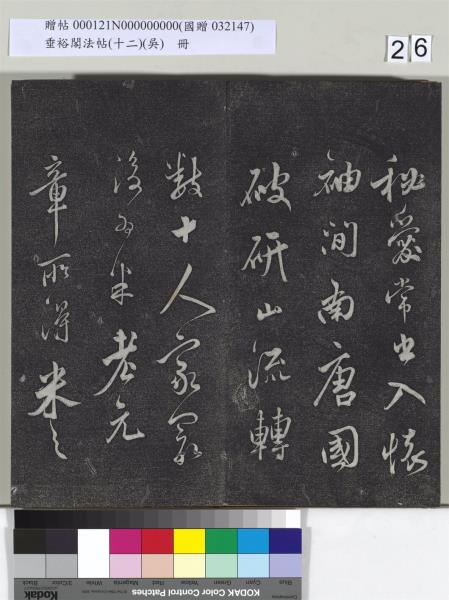 贈帖 000121N000000000(國贈 032147)
垂裕閣法帖(十二)(吳) 冊
26
秘愛常出入懷
袖間南唐國
破研山流轉
數十人家最
後為米老元
章所得米之
Blue
Cyan
Green
Yellow
Red
Magenta
White
3/Color
Black
KODAK Color Control Patches